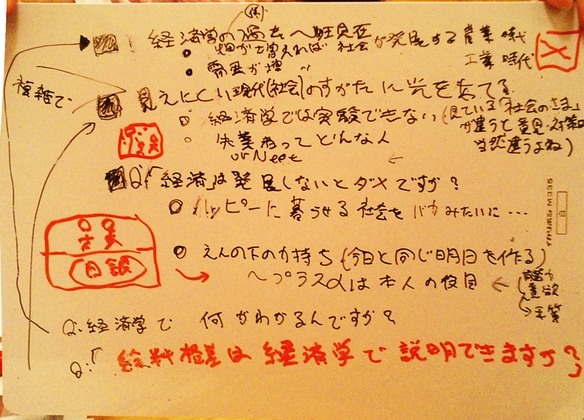 経済学の過去〜現在
畑が増えれば社会が発展する産業時代
需要が増〃 工業時代
複雑で
見えにくい現代(社会)のすがたに光をあてる
経済学では実験できない(見ている「社会のさま」
が違うと意見・対策は
当然違うよね)
失業者ってどんな人
or Neet
Q「経済は発展しないとダメですか?
ハッピーに暮らせる社会を
えんの下の力持ち(今日と同じ明日を作る)
〜プラスαは本人の役目
日銀
意欲
Q.経済学で 何がわかるんですか?
Q:「給料格差は経済学で説明できますか?